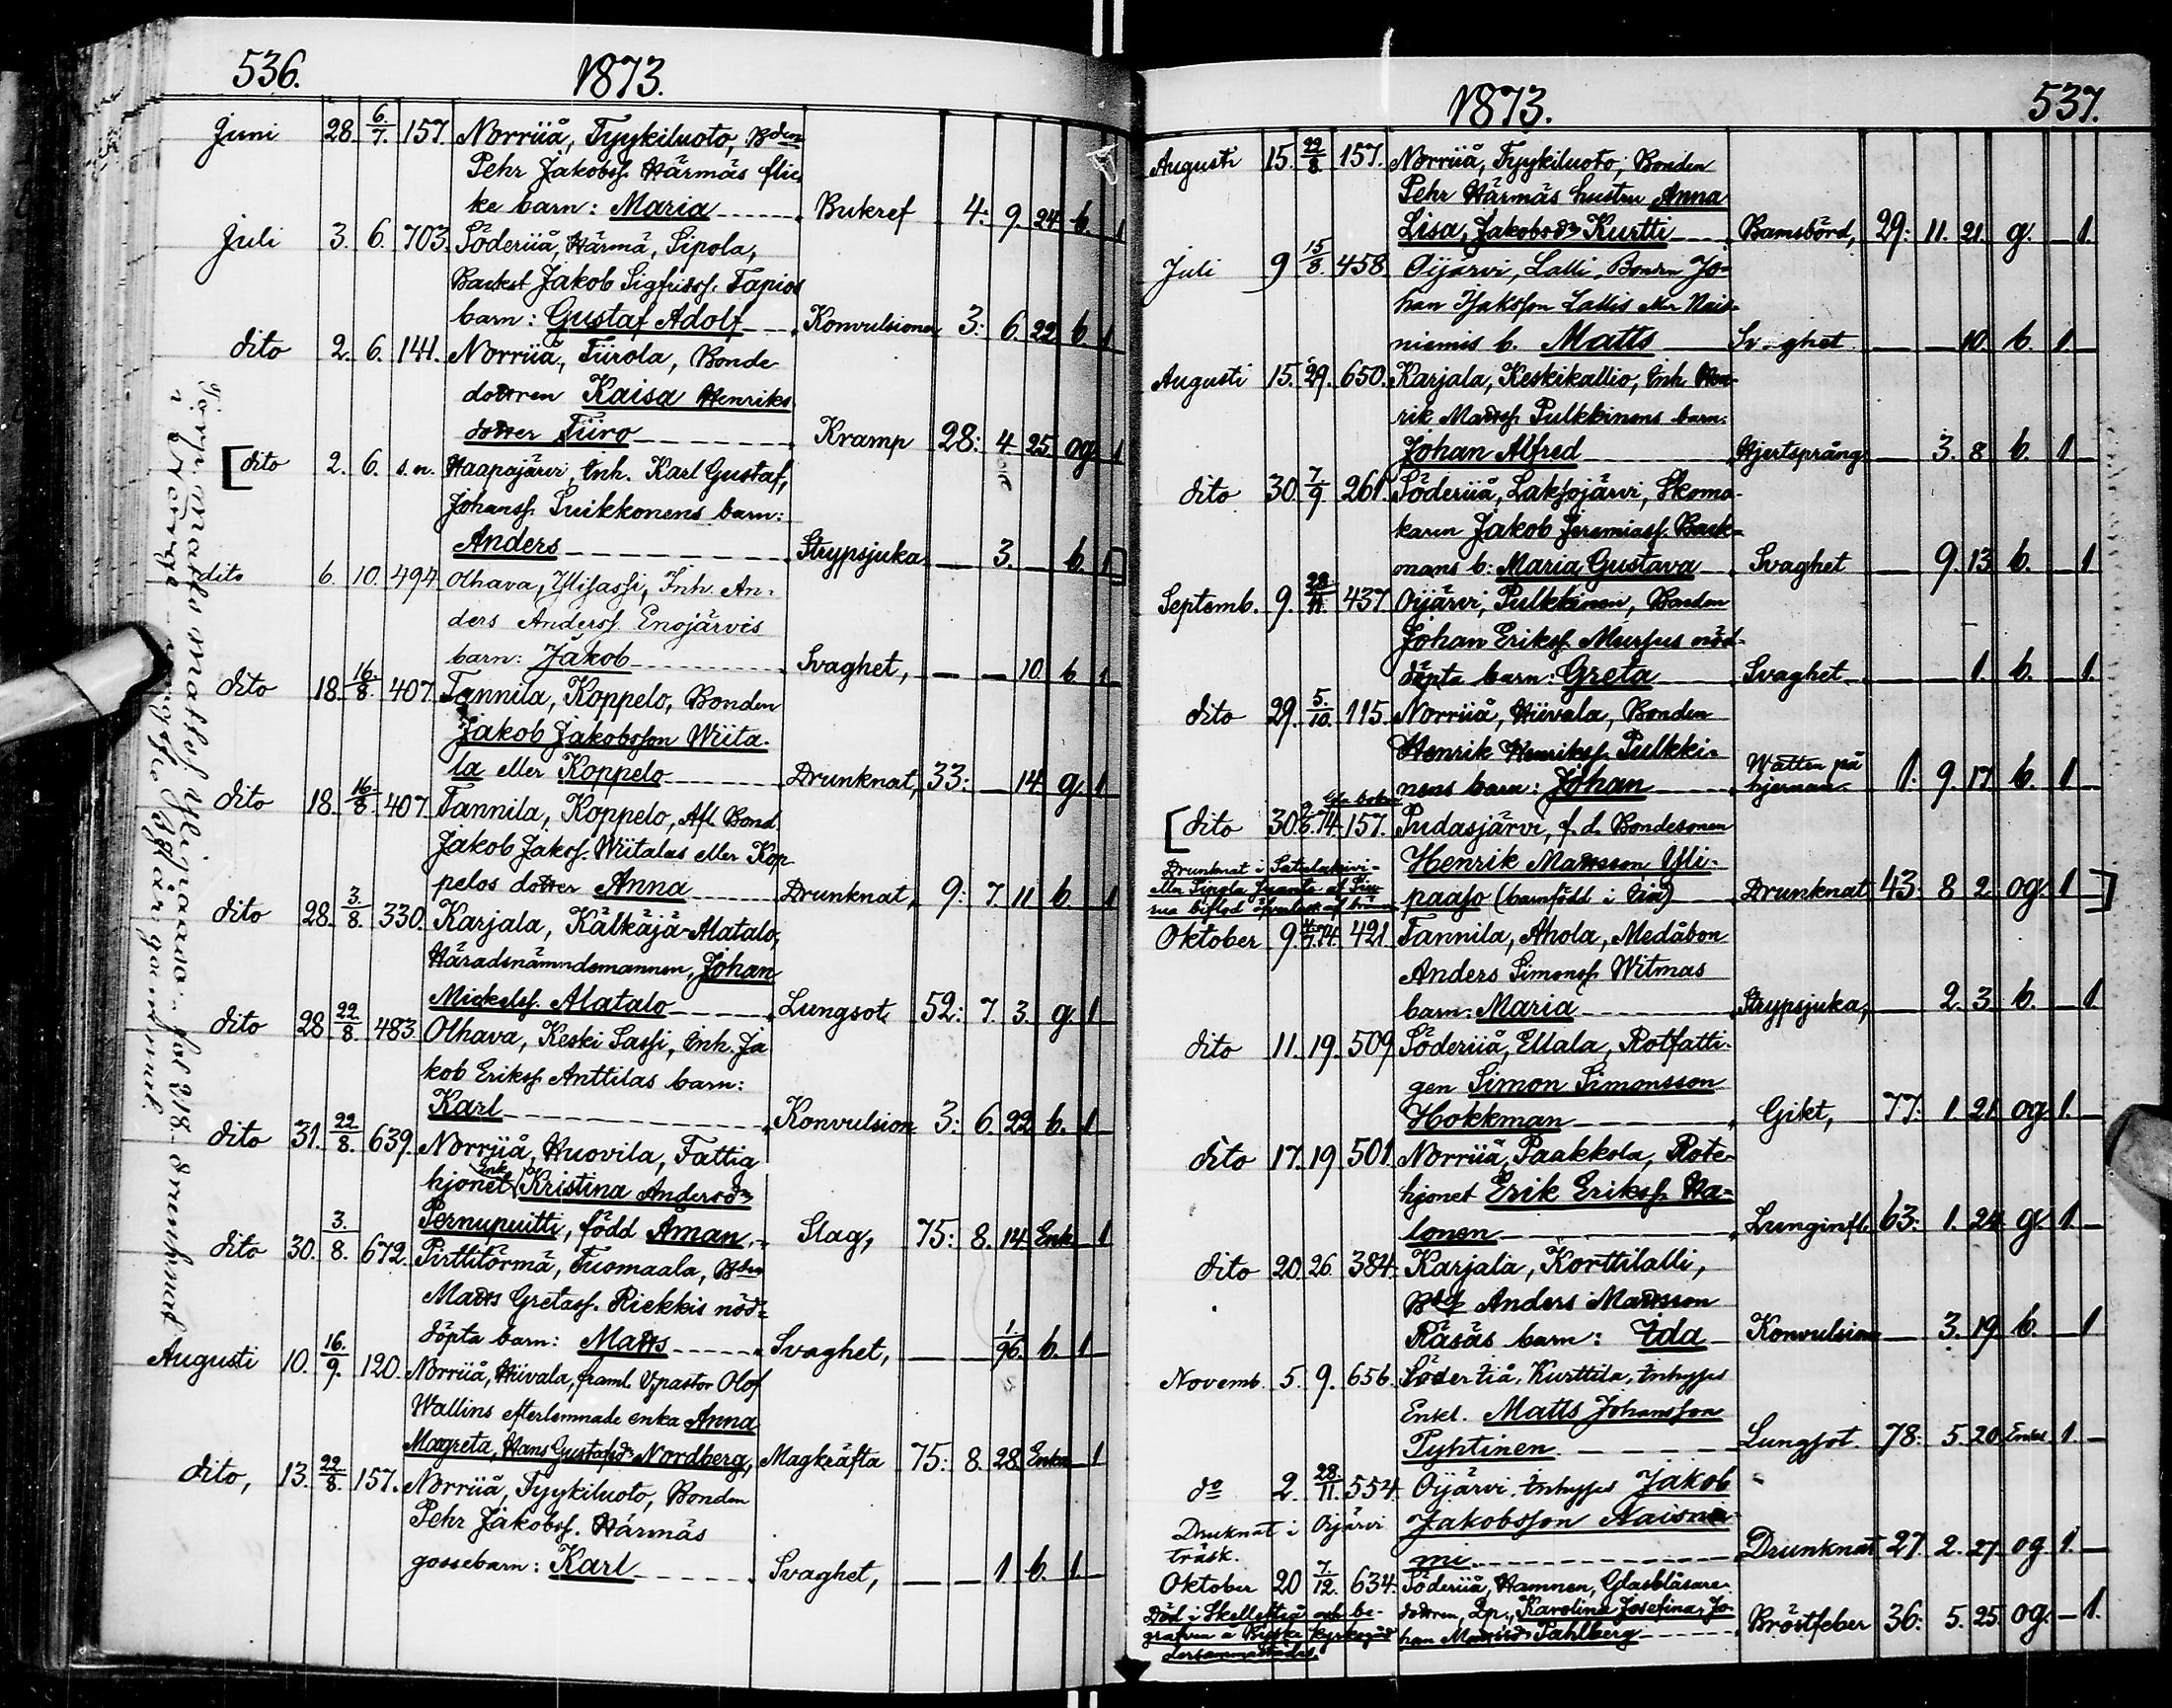 536. 1873.
Juni 28. 6/7. 157. Norriiå, Tyykiluoto, Bden
Pehr Jakobss. Härmäs flic
ke barn: Maria Bukref 4: 9. 24 b. 1
Juli 3. 6. 703. Söderiiå, Härmä, Sipola,
Backst Jakob Sigfridss. Tapios
barn: Gustaf Adolf Konvulsioner 3: 6. 22 b 1
dito 2. 6. 141. Norriiå, Tiirola, Bonde
dottren Kaisa Henriks
dotter Tiiro Kramp 28: 4 25 og 1
[dito 2. 6. s.n. Haapajärvi Inh. Karl Gustaf,
Johanss. Suikkonens barn:
Anders Strypsjuka — 3. b. 1]
dito 6. 10. 494. Olhava, Ylisassi, Inh. An-
ders Anderss. Enojärvis
barn: Jakob Svaghet, — — 10 b 1
dito 18. 16/8. 407. Tannila, Koppelo, Bonden
Jakob Jakobsson Wiita-
la eller Koppelo Drunknat, 33: — 14 g. 1
dito 18. 16/8. 407 Tannila, Koppelo, Afl. Bond
Jakob Jakss. Wiitalas eller Kop
pelos dotter Anna Drunknat, 9: 7. 11 b. 1
dito 28. 3/8. 330. Karjala, Kälkäjä-Alatalo,
Häradsnämndemannen, Johan
Mickelss. Alatalo Lungsot 52: 7. 3. g. 1
dito 28 22/8. 483. Olhava, Keski Sassi, Inh. Ja
kob Erikss. Anttilas barn:
Karl Konvulsion 3: 6. 22 b. 1
dito 31. 22/8. 639. Norriiå, Huovila, Fattig
hjonet Enk. Kristina Andersdr
Pernupuitti, född Aman Slag, 75: 8. 14. Enk 1
dito 30. 3./8. 672. Pirttitörmä, Tuomaala, Bden
Matts Gretass. Riekkis nöd-
döpta barn: Matts Svaghet, — — 1/96. b. 1
Augusti 10. 16./9. 120. Norriiå, Hiivala, framl. V,pastor Olof
Wallins efterlemnade enka Anna
Magreta, Hans Gustafsdr Nordberg, Magkräfta 75: 8. 28. Enka 1
dito, 13. 22/8. 157. Norriiå, Tyykiluoto, Bonden
Pehr Jakobss. Härmäs
gossebarn: Karl Svaghet, — — 1 b. 1.
1873. 537.
Augusti 15. 22/8. 157. Norriiå, Tyykiluoto, Bonden
Pehr Härmäs hustru Anna
Lisa, Jakobsdr Kurtti Barnsbörd, 29: 11. 21. g. — 1.
Juli 9 15/8. 458 Oijärvi, Lalli, Bonden Jo-
han Isaksson Lallis eller Nais-
niemis b. Matts Svaghet — — 10. b. 1.
Augusti 15. 29. 650. Karjala, Keskikallio, Inh. Hen-
rik Mattss. Pulkkinens barn:
Johan Alfred Hjertsprång — 3. 8 b. 1
dito 30. 7/9. 261. Söderiiå, Laksojärvi, Skoma-
karen Jakob Jeremiass. Back-
mans b: Maria Gustava Svaghet — 9. 13. b. — 1
Septemb. 9. 28/11. 437 Oijärvi, Pulkkinen, Bonden
Johan Erikss. Mursus nöd-
döpta barn: Greta Svaghet 1. b. 1.
dito 29. 5./10. 115. Norriiå, Hiivala, Bonden
Henrik Henrikss. Pulkki-
nens barn: Johan Watten på hjernan 1. 9. 17. b. 1
[dito 30. 74. 157. Pudasjärvi, f. d. Bondesonen
Henrik Mattsson, Yli-
paaso (barnfödd i Iiå) Drunknat 43. 8 2. og. 1]
Drunknat i
Oktober 9. 74. 421. Tannila, Ahola, Medåbon
Anders Simonss. Witmas
barn: Maria Strypsjuka, — 2. 3. b. — 1
dito 11. 19. 509 Söderiiå, Ellala, Rotfatti-
gen Simon Simonsson
Hokkman Gikt, 77. 1. 21. og. 1.
dito 17. 19 501. Norriiå, Paakkola, Rote-
hjonet Erik Erikss. Ha-
lonen Lunginfl. 63: 1. 24 g. 1.
dito 20. 26. 384. Karjala, Korttilalli,
Anders Mattsson
Räsäs barn: Ida Konvulsion — 3. 19. b. 1
Novemb. 5. 9. 656. Söder Iiå, Kurttila, Inhyses
Enkl. Matts Johansson
Pyhtinen Lungsot. 78: 5. 20 Enkl 1.
do 2. 28./11. 554. Oijärvi. Inhyses Jakob
Drunknat i Oijärvi Jakobsson Naisnie
träsk. mi Drunknat 27. 2. 27. og. 1.
Oktober 20 7/12. 634. Söderiiå, Hamnen, Glasblåsare-
Död i Skellefteå och be- dottren, Karolina Josefina, Jo-
grafven å kyrkogård han Tahlberg Bröstfeber 36: 5. 25. og. — 1.
dersammastädes.